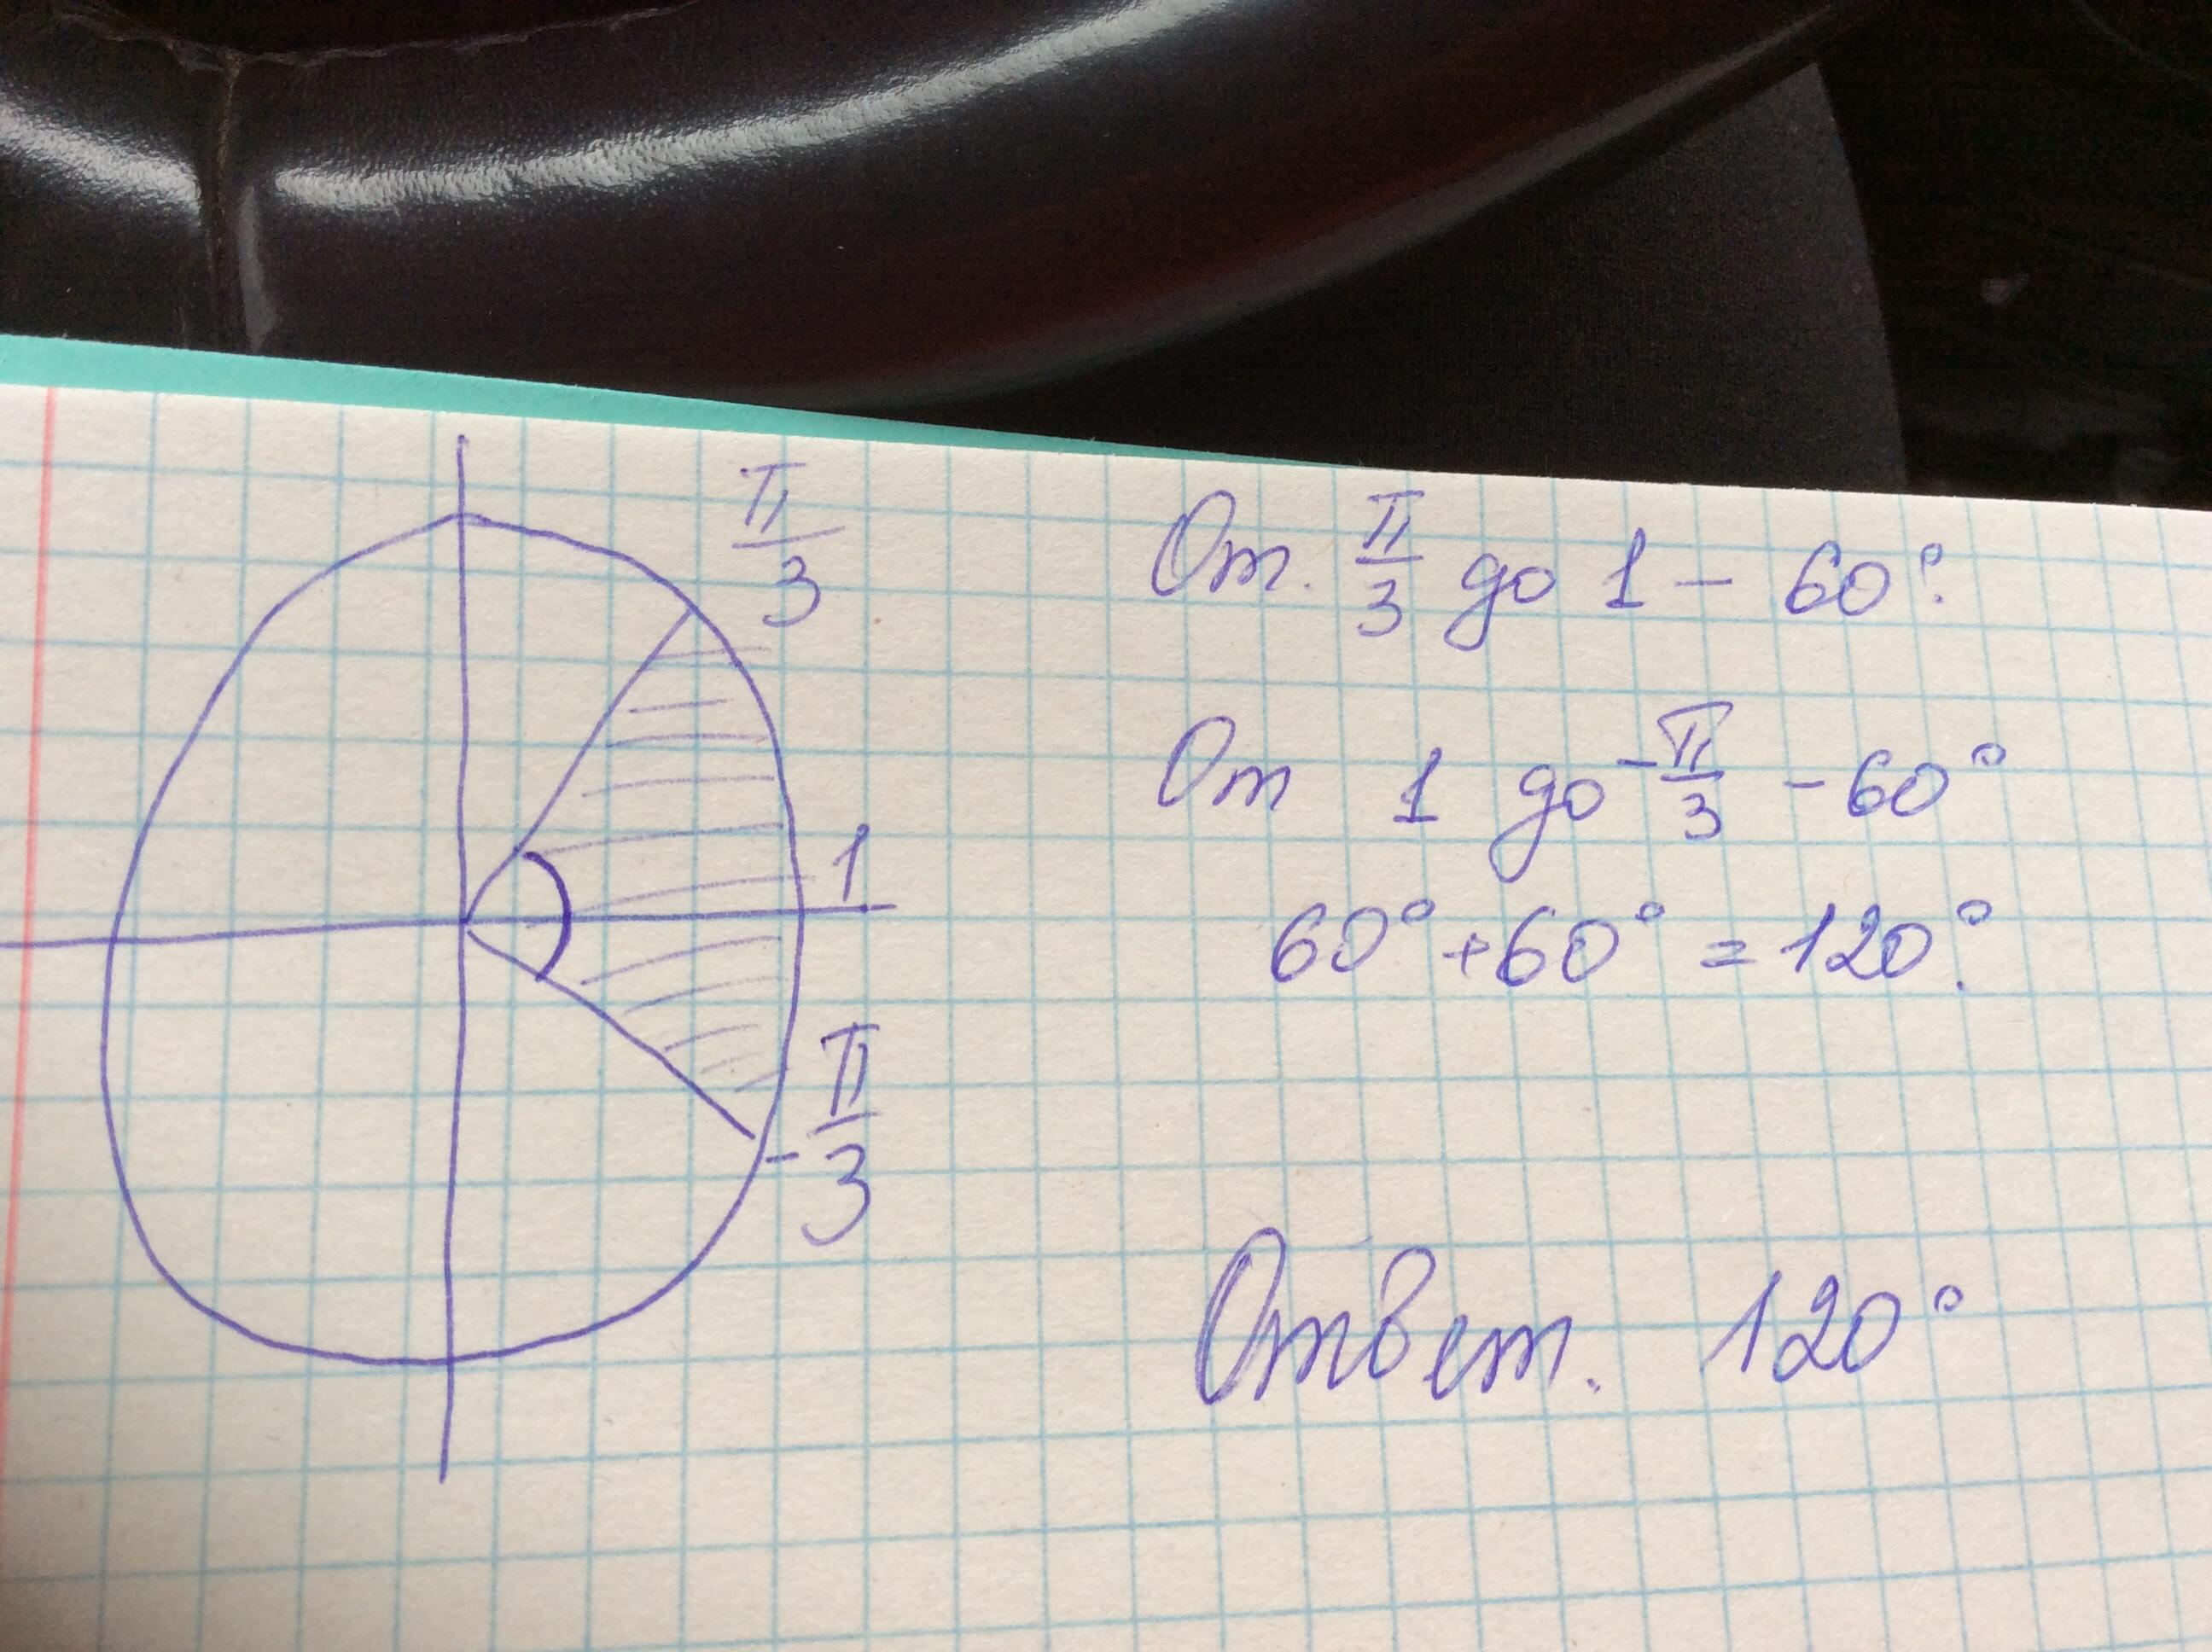 π/3
От π/3 до 1 – 60°.
От 1 до -π/3 – 60°
1
60° + 60° = 120°.
-π/3
Ответ. 120°